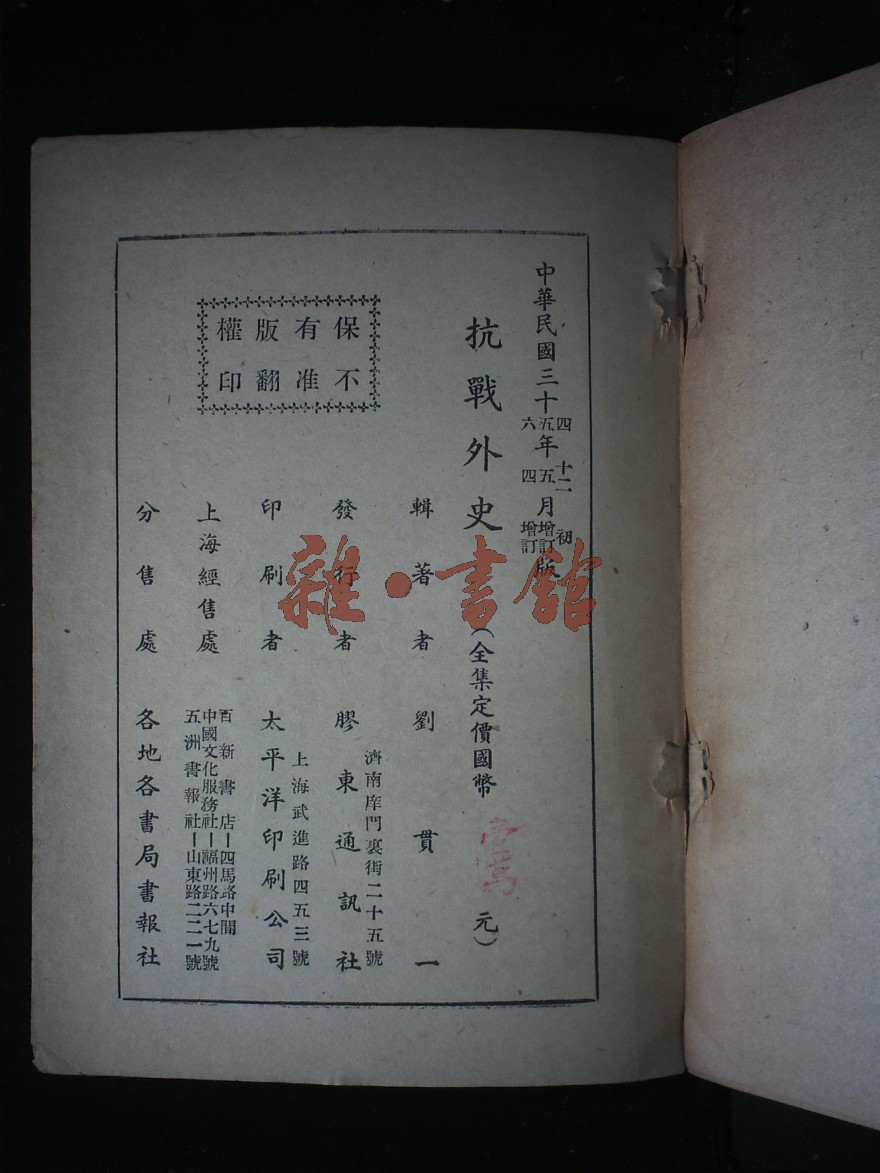 中華民國三十四五六年十二五四月初增訂增訂版
抗戰外史（全集定價國幣壹萬元）
輯著者劉貫一
濟南庠門裏街二十五號
發行者膠東通訊社
上海武進路四五三號
印刷者太平洋印刷公司
百新書店－四馬路中間
上海經售處中國文化服務社－福州路六七九號
五洲書報社－山東路二二一號
分售處各地各書局書報社
保有版權
不准翻印
雜·書館